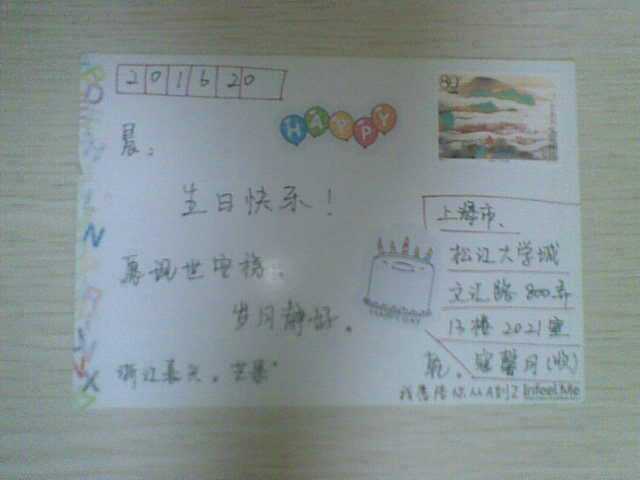 201620
80
HAPPY
晨：
生日快乐！
愿现世安稳、
岁月静好。
浙江嘉兴。
上海市、
松江大学城
文汇路 800弄
13楼 2021室
(收)
我愿陪你从A到Z InfeelMe